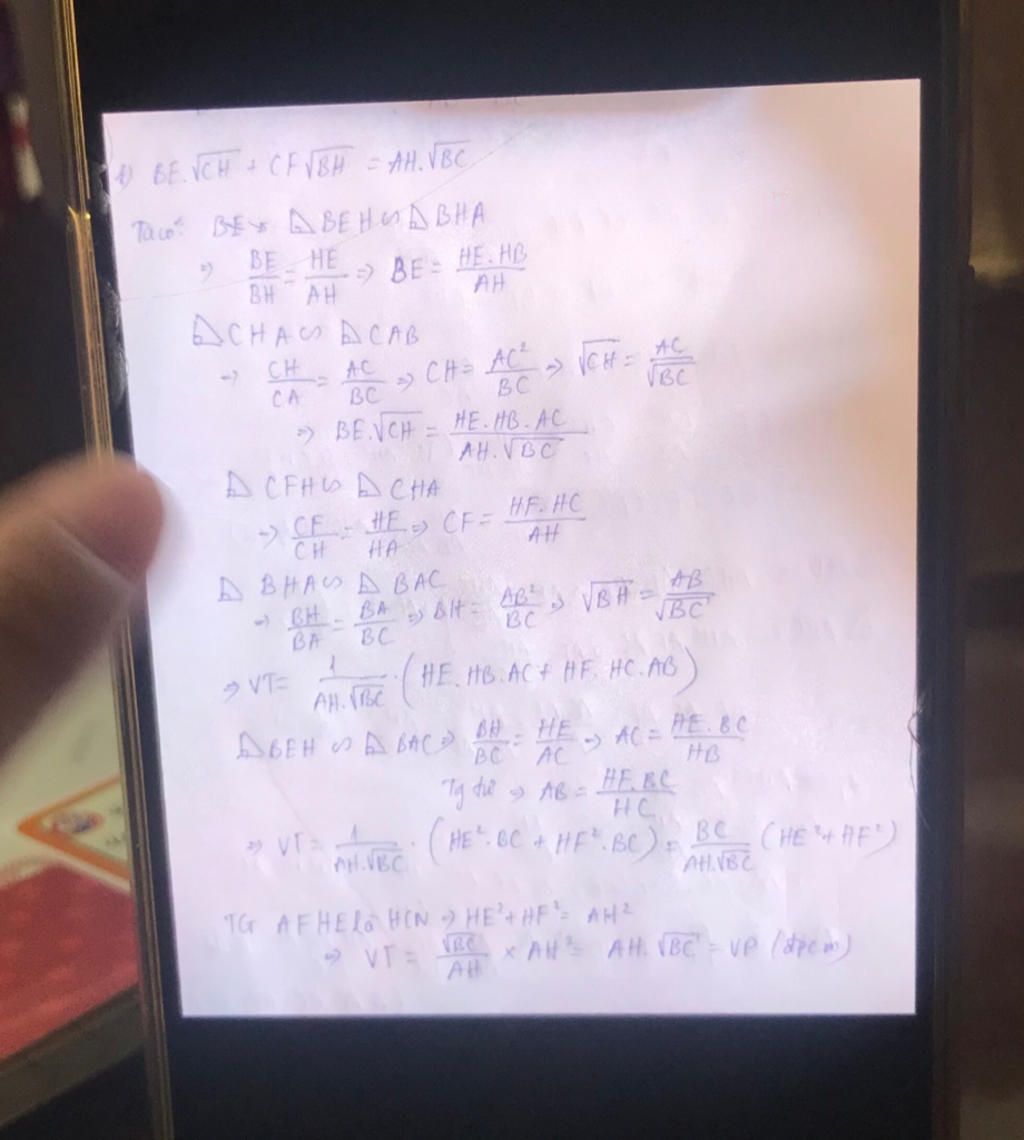 1) BE.√CH + CF√BH = AH.√BC
Ta có: BE △BEH ∽ △BHA
=> BE/BH = HE/AH => BE = HE.HB/AH
△CHA ∽ △CAB
=> CH/CA = AC/BC => CH = AC²/BC => √CH = AC/√BC
=> BE.√CH = HE.HB.AC/AH.√BC
△CFH ∽ △CHA
=> CF/CH = HF/HA => CF = HF.HC/AH
△BHA ∽ △BAC
=> BH/BA = BA/BC => BH = AB²/BC => √BH = AB/√BC
=> VT = 1/AH.√BC . (HE.HB.AC + HF.HC.AB)
△BEH ∽ △BAC => BH/BC = HE/AC => AC = HE.BC/HB
Tg tự => AB = HF.BC/HC
=> VT = 1/AH.√BC . (HE².BC + HF².BC) = BC/AH.√BC (HE² + HF²)
TG AFHE là HCN => HE² + HF² = AH²
=> VT = √BC/AH × AH² = AH.√BC = VP (đpcm)